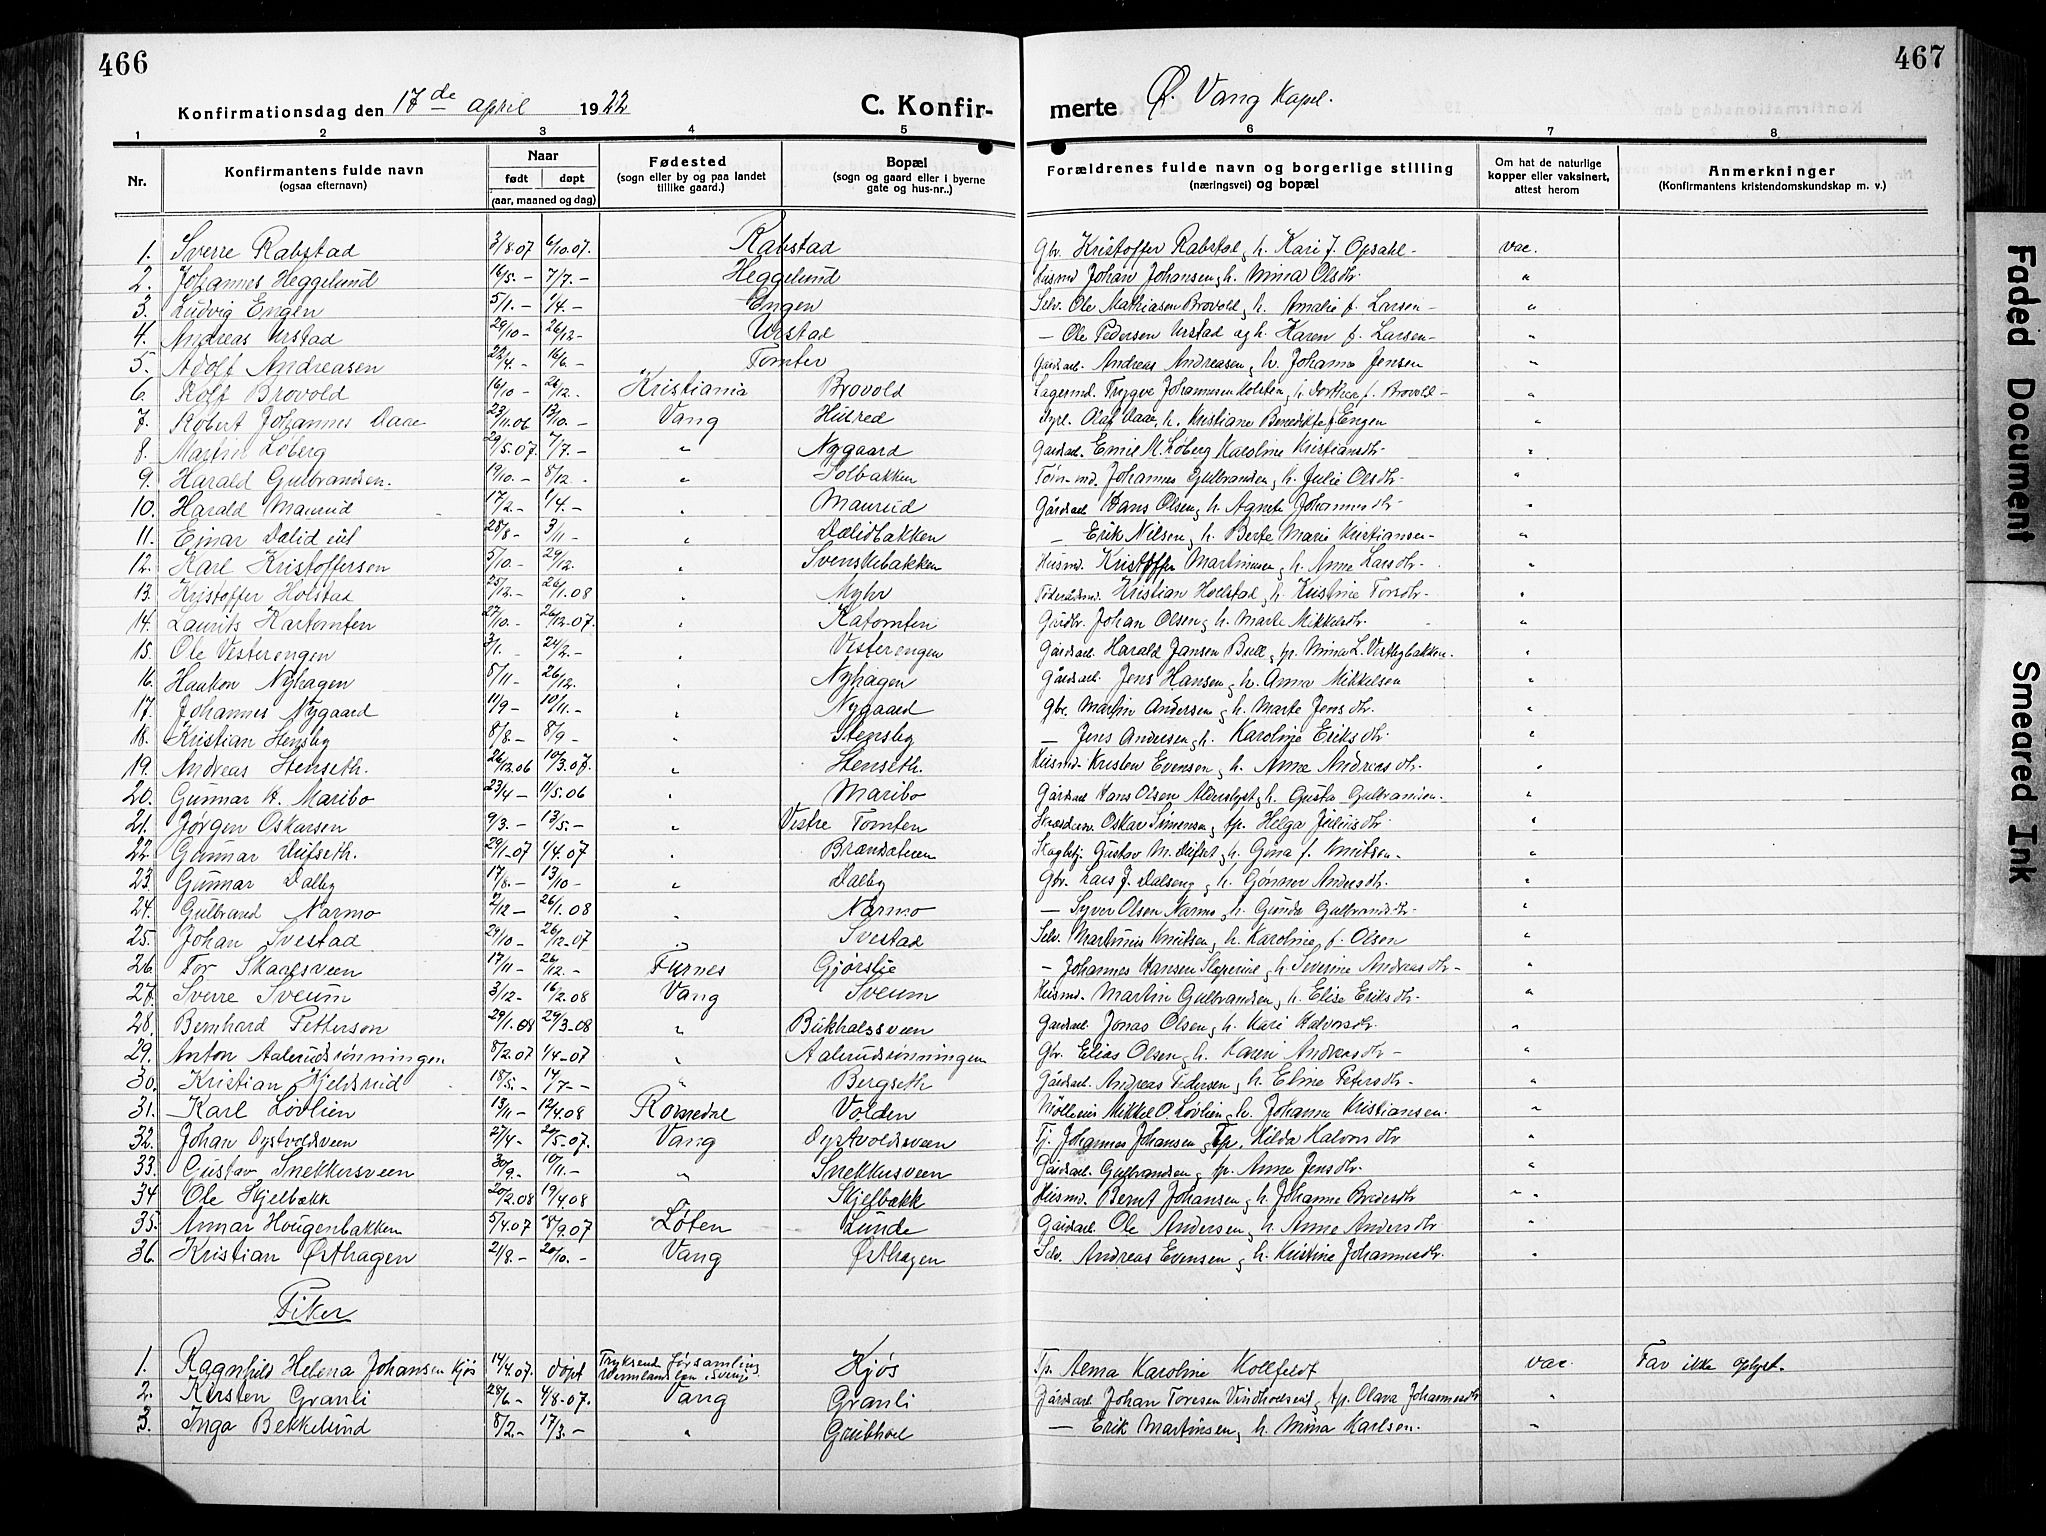 466
467
Konfirmationsdag den 17de april 1922 C. Konfir- merte Ø. Vang Kapel.
1 2 3 4 5 6 7 8
Nr. Konfirmantens fulde navn (ogsaa efternavn) Naar født døpt (aar, maaned og dag) Fødested (sogn eller by og paa landet tillike gaard.) Bopæl (sogn og gaard eller i byerne gate og hus-nr..) Forældrenes fulde navn og borgerlige stilling (næringsvei) og bopæl Om hat de naturlige kopper eller vaksinert, attest herom Anmerkninger (Konfirmantens kristendomskundskap m. v.)
1. Sverre Rabstad 3/8.07 6/10.07. Rabstad Gbr. Kristoffer Rabstad, h. Kari J. Opsahl- vac.
2. Johannes Heggelund 16/5.- 7/7.- Heggelund Husmd Johan Johansen, h. Mina Olsdtr. "
3. Ludvig Engen 5/1.- 1/4.- Engen Selv. Ole Mathiasen Brovold, h. Amalie f. Larsen- "
4. Andreas Urstad 29/10- 26/12- Urstad - Ole Pedersen Urstad og h. Karen f. Larsen- "
5. Adolf Andreasen 22/4.- 16/6.- Tomter Gårdsarb. Andreas Andreasen, h. Johanne Jensen "
6. Rolf Brovold 16/10- 26/12. Kristiania Brovold Lagermd. Trygve Johannesen Holsten, h. Dorthea f. Brovold- "
7. Robert Johannes Daae 23/11.06 13/10.- Vang Husred Olaf Daae, h. Kristiane Benedikte f. Engen "
8. Martin Løberg 29/5.07 7/7.- " Nygaard Gardsarb. Emil M. Løberg Karoline Kristiansdtr- "
9. Harald Gulbrandsen. 19/10.- 8/12. " Solbakken Johannes Gulbrandsen, h. Julie Olsdtr- "
10. Harald Maurud 17/2.- 1/4.- " Maurud Gårdsarb Hans Olsen, h. Agnete Johannesdtr- "
11. Einar Dælid 28/8- 3/11- " Dælidbakken - Erik Nilsen, h. Berte Marie Kristiansen- "
12. Karl Kristoffersen 5/10- 29/12. " Svenskebakken Husmd. Kristoffer Martinusen, h. Anne Larsdtr- "
13. Kristoffer Holstad 25/12- 26/1.08 " Myhr Føderådsmd. Kristian Holstad, h. Kristine Toresdtr- "
14. Laurits Kartomten 27/10.- 26/12-07. " Katomten Gårdbr. Johan Olsen, h. Marte Mikkelsdtr. "
15. Ole Vesterengen 3/1. 24/2.- " Vesterengen Gårdsarb. Harald Jansen Bull, tp. Mina L. Vestbybakken. "
16. Haakon Nyhagen 8/11- 26/12. " Nyhagen Gårdsarb. Jens Hansen, h. Anna Mikkelsen "
17. Johannes Nygaard 11/9- 10/11.- " Nygaard Gbr. Martin Andersen, h. Marte Jensdtr. "
18. Kristian Stensby 8/8- 8/9- " Stensby - Jens Andersen, h. Karoline Eriksdtr. "
19. Andreas Stenseth. 26/12.06 10/3.07. " Stenseth. Husmd. Kristen Evensen, h. Anne Andreasdtr. "
20. Gunnar H. Maribo 23/4- 11/5.06 " Maribo Gårdsarb Hans Olsen Alderslyst, h. Gusta Gulbrandsen- "
21. Jørgen Oskarsen 9/3.- 13/5.- " Vestre Tomten Oskar Simensen, tp. Helga Juliusdtr. "
22. Gunnar Ulfseth. 29/1-07 1/4.07 " Skogbetj. Gustav M. Ulfset, h. Gina f. Knutsen- "
23. Gunnar Dalby 17/8.- 13/10- " Dalby Gbr. Lars J. Dalseng, h. Gønner Andersdtr. "
24. Gulbrand Narmo 2/12- 26/1.08 " Narmo - Syver Olsen Narmo, h. Gunda Gulbrandsdtr- "
25. Johan Svestad 29/10- 26/12-07 " Svestad Selv. Martinus Knutsen, h. Karoline f. Olsen "
26. Tor Skarlsveen 17/11- 26/12.- Furnes Gjørslie - Johannes Hansen, h. Severine Andreasdtr- "
27. Sverre Sveum 3/12- 16/2.08 Vang Sveum Husmd. Martin Gulbrandsen, h. Elise Eriksdtr- "
28. Bernhard Petterson 29/1.08 29/3-08 " Bukhalssveen Gardsarb. Jonas Olsen, h. Kari Halvorsdtr. "
29. Anton Aalerudsrønningen 8/2.07 1/4-07 " Aalerudsrønningen Gbr. Elias Olsen, h. Karen Andersdtr- "
30. Kristian Hjelsrud 18/5.- 14/7.- " Bergseth Gårdsarb. Andreas Pedersen, h. Eline Petersdtr- "
31. Karl Løvlien 13/11- 12/4.08 Romedal Volden Mikkel O. Løvlien, h. Johanne Kristiansen. "
32. Johan Oystvoldsveen 27/4- 20/5-07. Vang Oystvoldsveen Tj. Johannes Johansen, Tp. Hilda Halvorsdtr "
33. Gustav Snekkersveen 30/9.- 10/11.- " Snekkersveen Gårdsarb. Gulbrandsen, tp. Anne Jensdtr. "
34 Ole Skjelbækk 20/2.08 19/4.08 Skjelbækk Husmd. Bernt Johansen, h. Johanne Bredesdtr " "
35. Annar Hougenbakken 5/4.07 18/9.07 Løten Lunde Gårdsarb. Ole Andersen, h. Anne Andersdtr "
36. Kristian Østhagen 21/8.- 20/10.- Vang Østhagen Selv. Andreas Evensen, h. Kristine Johannesdtr. "
Piker
1. Ragnhild Helena Johansen Kjøs 14/4.07. døpt Tryksend Forsamling Vermlands len i Sverige Kjøs Tp. Alma Karoline Kollfeldt vac. Far ikke oplyst.
2. Kirsten Granli 28/6- 4/8-07. Vang Granli Gårdsarb. Johan Toresen, tp. Olava Johannesdtr "
3. Inga Bekkelund 8/2.- 17/3.- " Grubhol - Erik Martinsen, h. Mina Karlsen. "
Faded Document
Smeared Ink